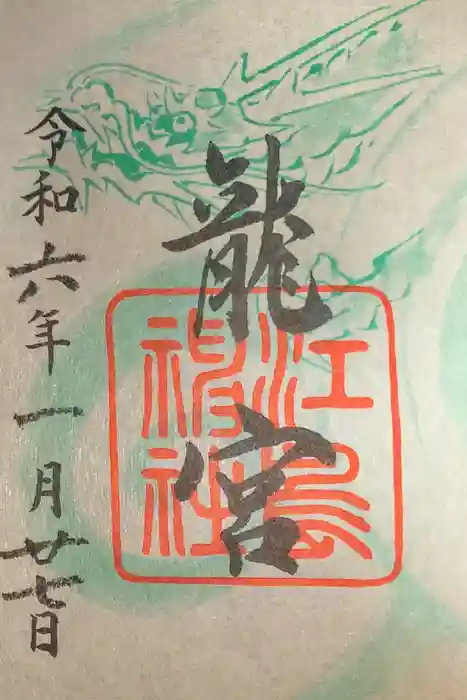 龍宮
江島神社
令和六年一月廿七日